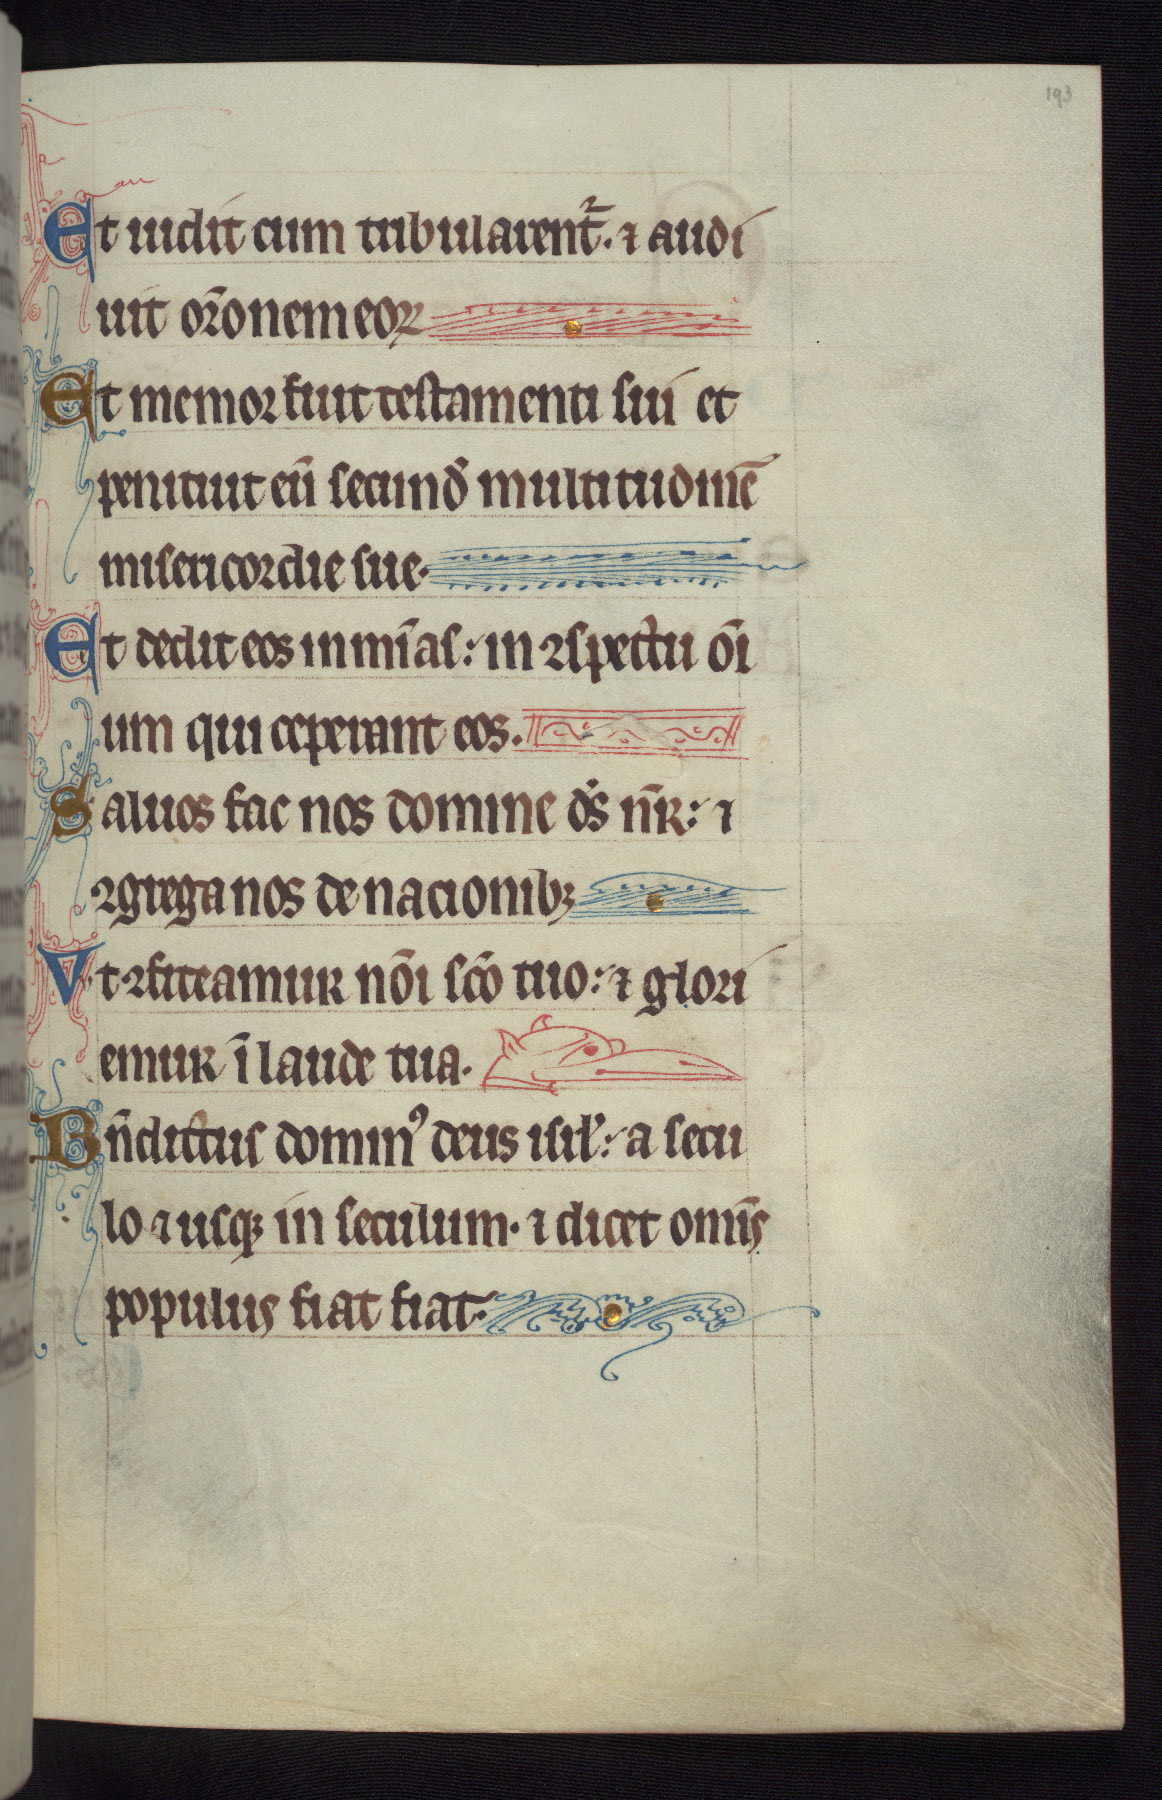 193
Et uidit cum tribularent᷑. ⁊ audi
uit or̄onem eoꝝ
Et memor fuit testamenti sui et
penituit eū secund̄ multitudinē
misericordie sue.
Et dedit eos in mīas: in ꝯspectu om̄i
um qui ceperant eos.
Saluos fac nos domine ds̄ nr̄: ⁊
ꝯgrega nos de nacionibꝫ
Vt ꝯfiteamur nōi scō tuo: ⁊ glori
emur ī laude tua.
Bn̄dictus dominꝰ deus isrl̄: a secu
lo ⁊ usqꝫ in seculum. ⁊ dicet omīs
populus fiat fiat.